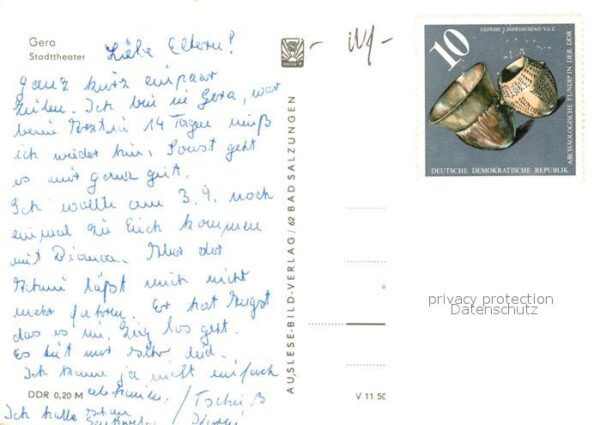 Gera
Stadttheater
Liebe Eltern!
ganz kurz ein paar
Zeilen. Ich bin in Gera, war
beim Arzt in 14 Tagen muß
ich wieder hin. Sonst geht
es mir ganz gut.
Ich wollte am 3.9. noch
einmal zu Euch kommen
mit Diana. Aber der
läßt mich nicht
mehr fahren. Er hat Angst
das es im Zug los geht.
Es tut mir sehr leid.
Ich kann ja nicht einfach
DDR 0,20 M
Ich
AUSLESE-BILD-VERLAG / 62 BAD SALZUNGEN
V 11 50
10
GEFÄSSE 1. JAHRTAUSEND V.U.Z.
ARCHÄOLOGISCHE FUNDE IN DER DDR
DEUTSCHE DEMOKRATISCHE REPUBLIK
privacy protection
Datenschutz